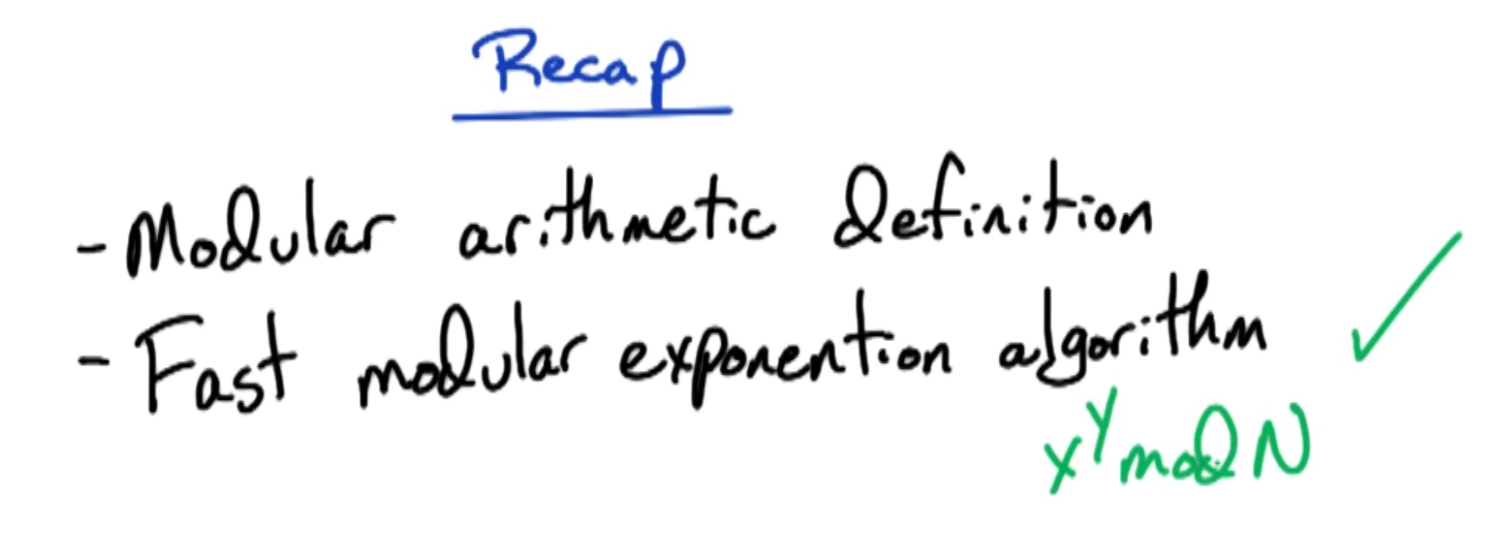 Recap
- Modular arithmetic definition
- Fast modular exponention algorithm ✓
x^y mod N